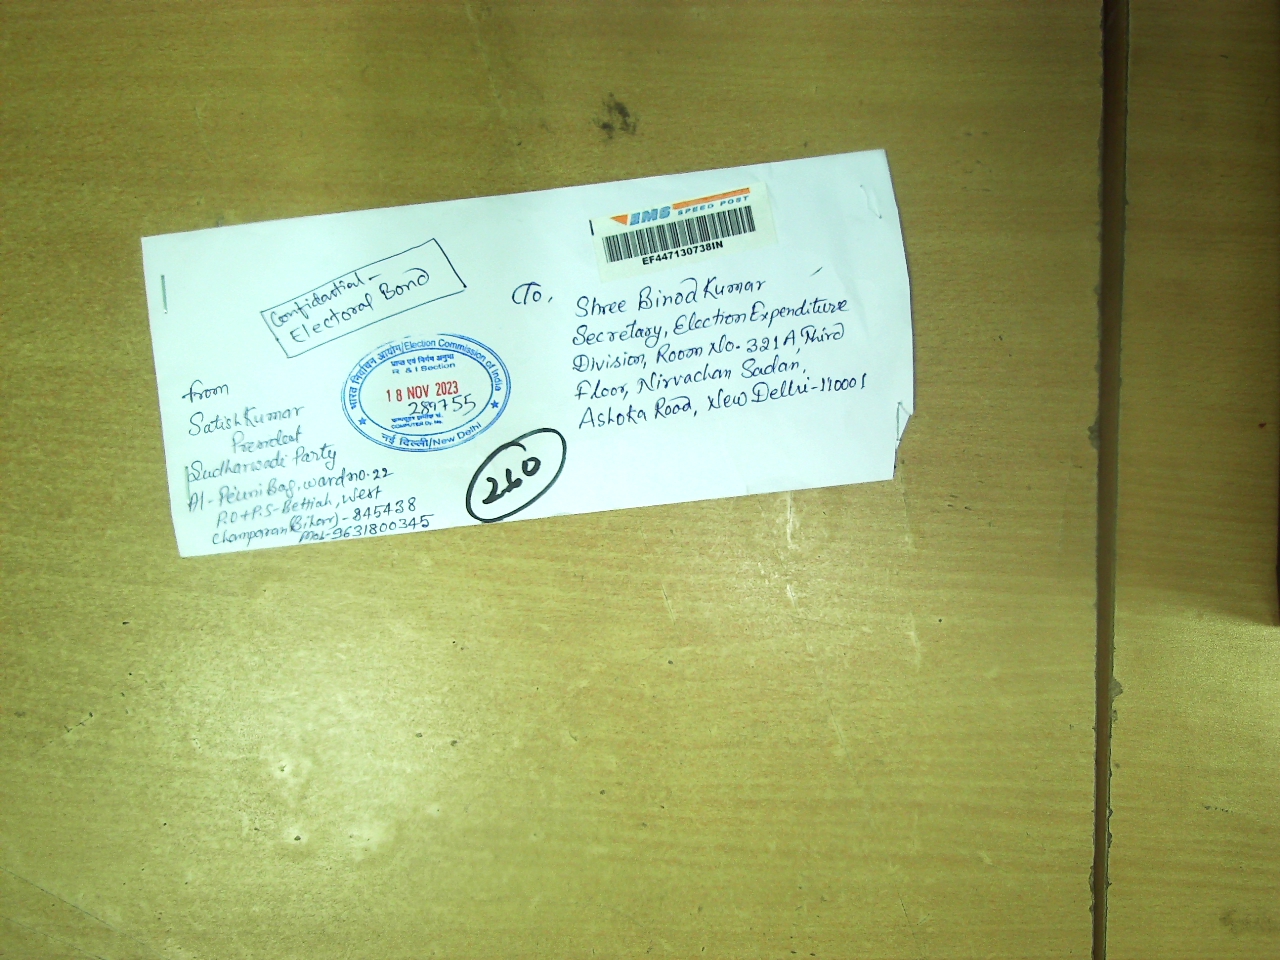 EMS SPEED POST
EF447130738IN
Confidential-
Electoral Bond
To,
Shree Binod Kumar
Secretary, Election Expenditure
Division, Room No. 321A, Third
Floor, Nirvachan Sadan,
Ashoka Road, New Delhi-110001
भारत निर्वाचन आयोग/Election Commission of India
प्राप्त एवं निर्गम अनुभाग
R & I Section
18 NOV 2023
289755
COMPUTER Dy. No.
नई दिल्ली/New Delhi
260
from
Satish Kumar
President
Sudharwadi Party
At- Peuni Bag, ward no. 22
P.O+P.S-Bettiah, West
Champaran (Bihar) - 845438
Mob-9631800345